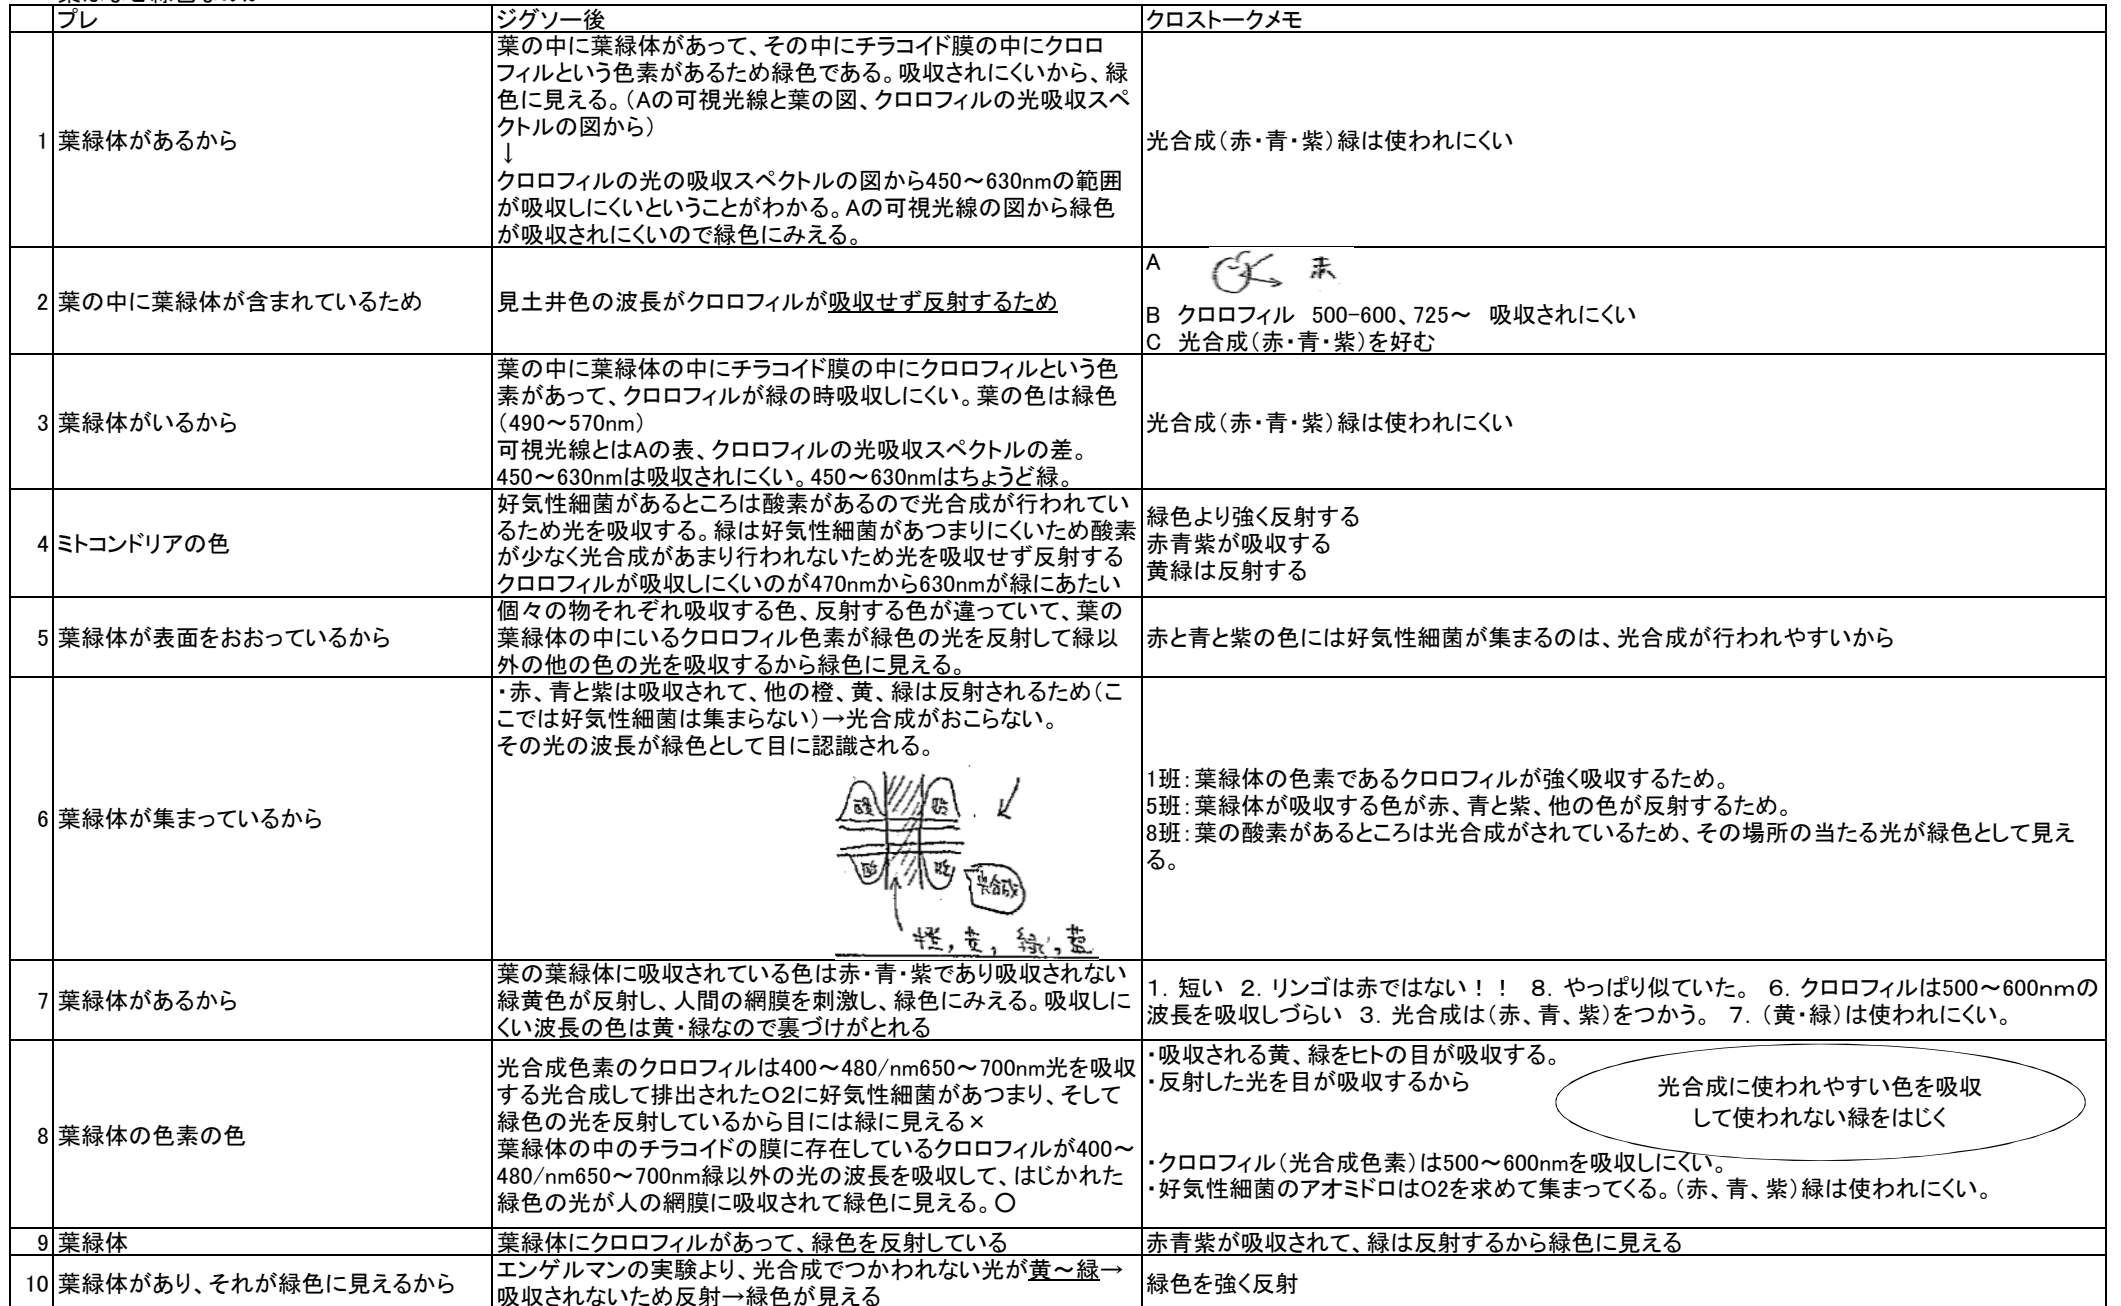 プレ ジグソー後 クロストークメモ
1 葉緑体があるから
葉の中に葉緑体があって、その中にチラコイド膜の中にクロロ
フィルという色素があるため緑色である。吸収されにくいから、緑
色に見える。(Aの可視光線と葉の図、クロロフィルの光吸収スペ
クトルの図から)
↓
クロロフィルの光の吸収スペクトルの図から450～630nmの範囲
が吸収しにくいということがわかる。Aの可視光線の図から緑色
が吸収されにくいので緑色にみえる。
光合成(赤・青・紫)緑は使われにくい
2 葉の中に葉緑体が含まれているため
見土井色の波長がクロロフィルが吸収せず反射するため
A 赤
B クロロフィル 500-600、725～ 吸収されにくい
C 光合成(赤・青・紫)を好む
3 葉緑体がいるから
葉の中に葉緑体の中にチラコイド膜の中にクロロフィルという色
素があって、クロロフィルが緑の時吸収しにくい。葉の色は緑色
(490～570nm)
可視光線とはAの表、クロロフィルの光吸収スペクトルの差。
450～630nmは吸収されにくい。450～630nmはちょうど緑。
光合成(赤・青・紫)緑は使われにくい
4 ミトコンドリアの色
好気性細菌があるところは酸素があるので光合成が行われてい
るため光を吸収する。緑は好気性細菌があつまりにくいため酸素
が少なく光合成があまり行われないため光を吸収せず反射する
クロロフィルが吸収しにくいのが470nmから630nmが緑にあたい
緑色より強く反射する
赤青紫が吸収する
黄緑は反射する
5 葉緑体が表面をおおっているから
個々の物それぞれ吸収する色、反射する色が違っていて、葉の
葉緑体の中にいるクロロフィル色素が緑色の光を反射して緑以
外の他の色の光を吸収するから緑色に見える。
赤と青と紫の色には好気性細菌が集まるのは、光合成が行われやすいから
6 葉緑体が集まっているから
・赤、青と紫は吸収されて、他の橙、黄、緑は反射されるため(こ
こでは好気性細菌は集まらない)→光合成がおこらない。
その光の波長が緑色として目に認識される。
光合成
橙, 黄, 緑, 藍
1班:葉緑体の色素であるクロロフィルが強く吸収するため。
5班:葉緑体が吸収する色が赤、青と紫、他の色が反射するため。
8班:葉の酸素があるところは光合成がされているため、その場所の当たる光が緑色として見え
る。
7 葉緑体があるから
葉の葉緑体に吸収されている色は赤・青・紫であり吸収されない
緑黄色が反射し、人間の網膜を刺激し、緑色にみえる。吸収しに
くい波長の色は黄・緑なので裏づけがとれる
1．短い 2．リンゴは赤ではない！！ 8．やっぱり似ていた。 6．クロロフィルは500～600nmの
波長を吸収しづらい 3．光合成は(赤、青、紫)をつかう。 7．(黄・緑)は使われにくい。
8 葉緑体の色素の色
光合成色素のクロロフィルは400～480/nm650～700nm光を吸収
する光合成して排出されたO2に好気性細菌があつまり、そして
緑色の光を反射しているから目には緑に見える×
葉緑体の中のチラコイドの膜に存在しているクロロフィルが400～
480/nm650～700nm緑以外の光の波長を吸収して、はじかれた
緑色の光が人の網膜に吸収されて緑色に見える。○
・吸収される黄、緑をヒトの目が吸収する。
・反射した光を目が吸収するから
光合成に使われやすい色を吸収
して使われない緑をはじく
・クロロフィル(光合成色素)は500～600nmを吸収しにくい。
・好気性細菌のアオミドロはO2を求めて集まってくる。(赤、青、紫)緑は使われにくい。
9 葉緑体
葉緑体にクロロフィルがあって、緑色を反射している
赤青紫が吸収されて、緑は反射するから緑色に見える
10 葉緑体があり、それが緑色に見えるから
エンゲルマンの実験より、光合成でつかわれない光が黄～緑→
吸収されないため反射→緑色が見える
緑色を強く反射